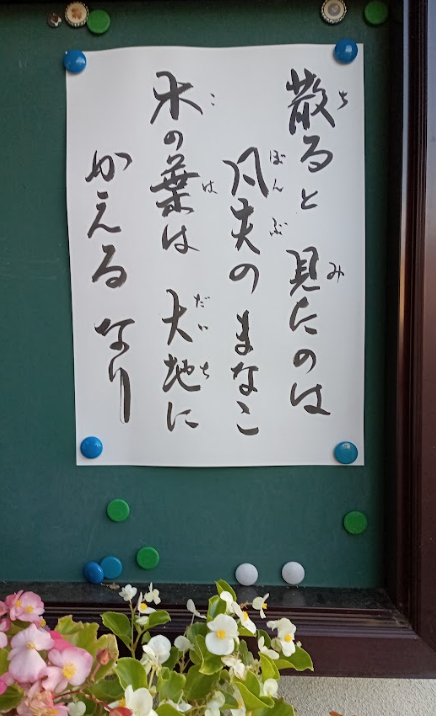 散ると 見たのは
凡夫の まなこ
木の葉は 大地に
かえる なり
ち
み
ぼんぶ
こ
は
だいち